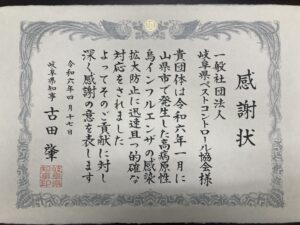 感謝状
一般社団法人
岐阜県ペストコントロール協会様
貴団体は令和六年一月に
山県市で発生した高病原性
鳥インフルエンザの感染
拡大防止に迅速且つ的確な
対応をされました
よってそのご貢献に対し
深く感謝の意を表します
令和六年四月十七日
岐阜県知事 古田肇